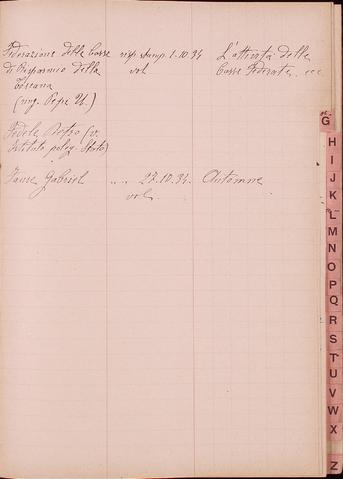 Federazione delle Casse risp. stamp. 1-10.34 L'attività delle
di Risparmio della vol Casse Federate, ecc
Toscana
(ring. Pepe U.)
Fedele Pietro (v.
Istituto, poligr. Stato)
Faure Gabriel " " 27.10.34. Automne
vol.
G
H
I
J
K
L
M
N
O
P
Q
R
S
T
U
V
W
X
Z